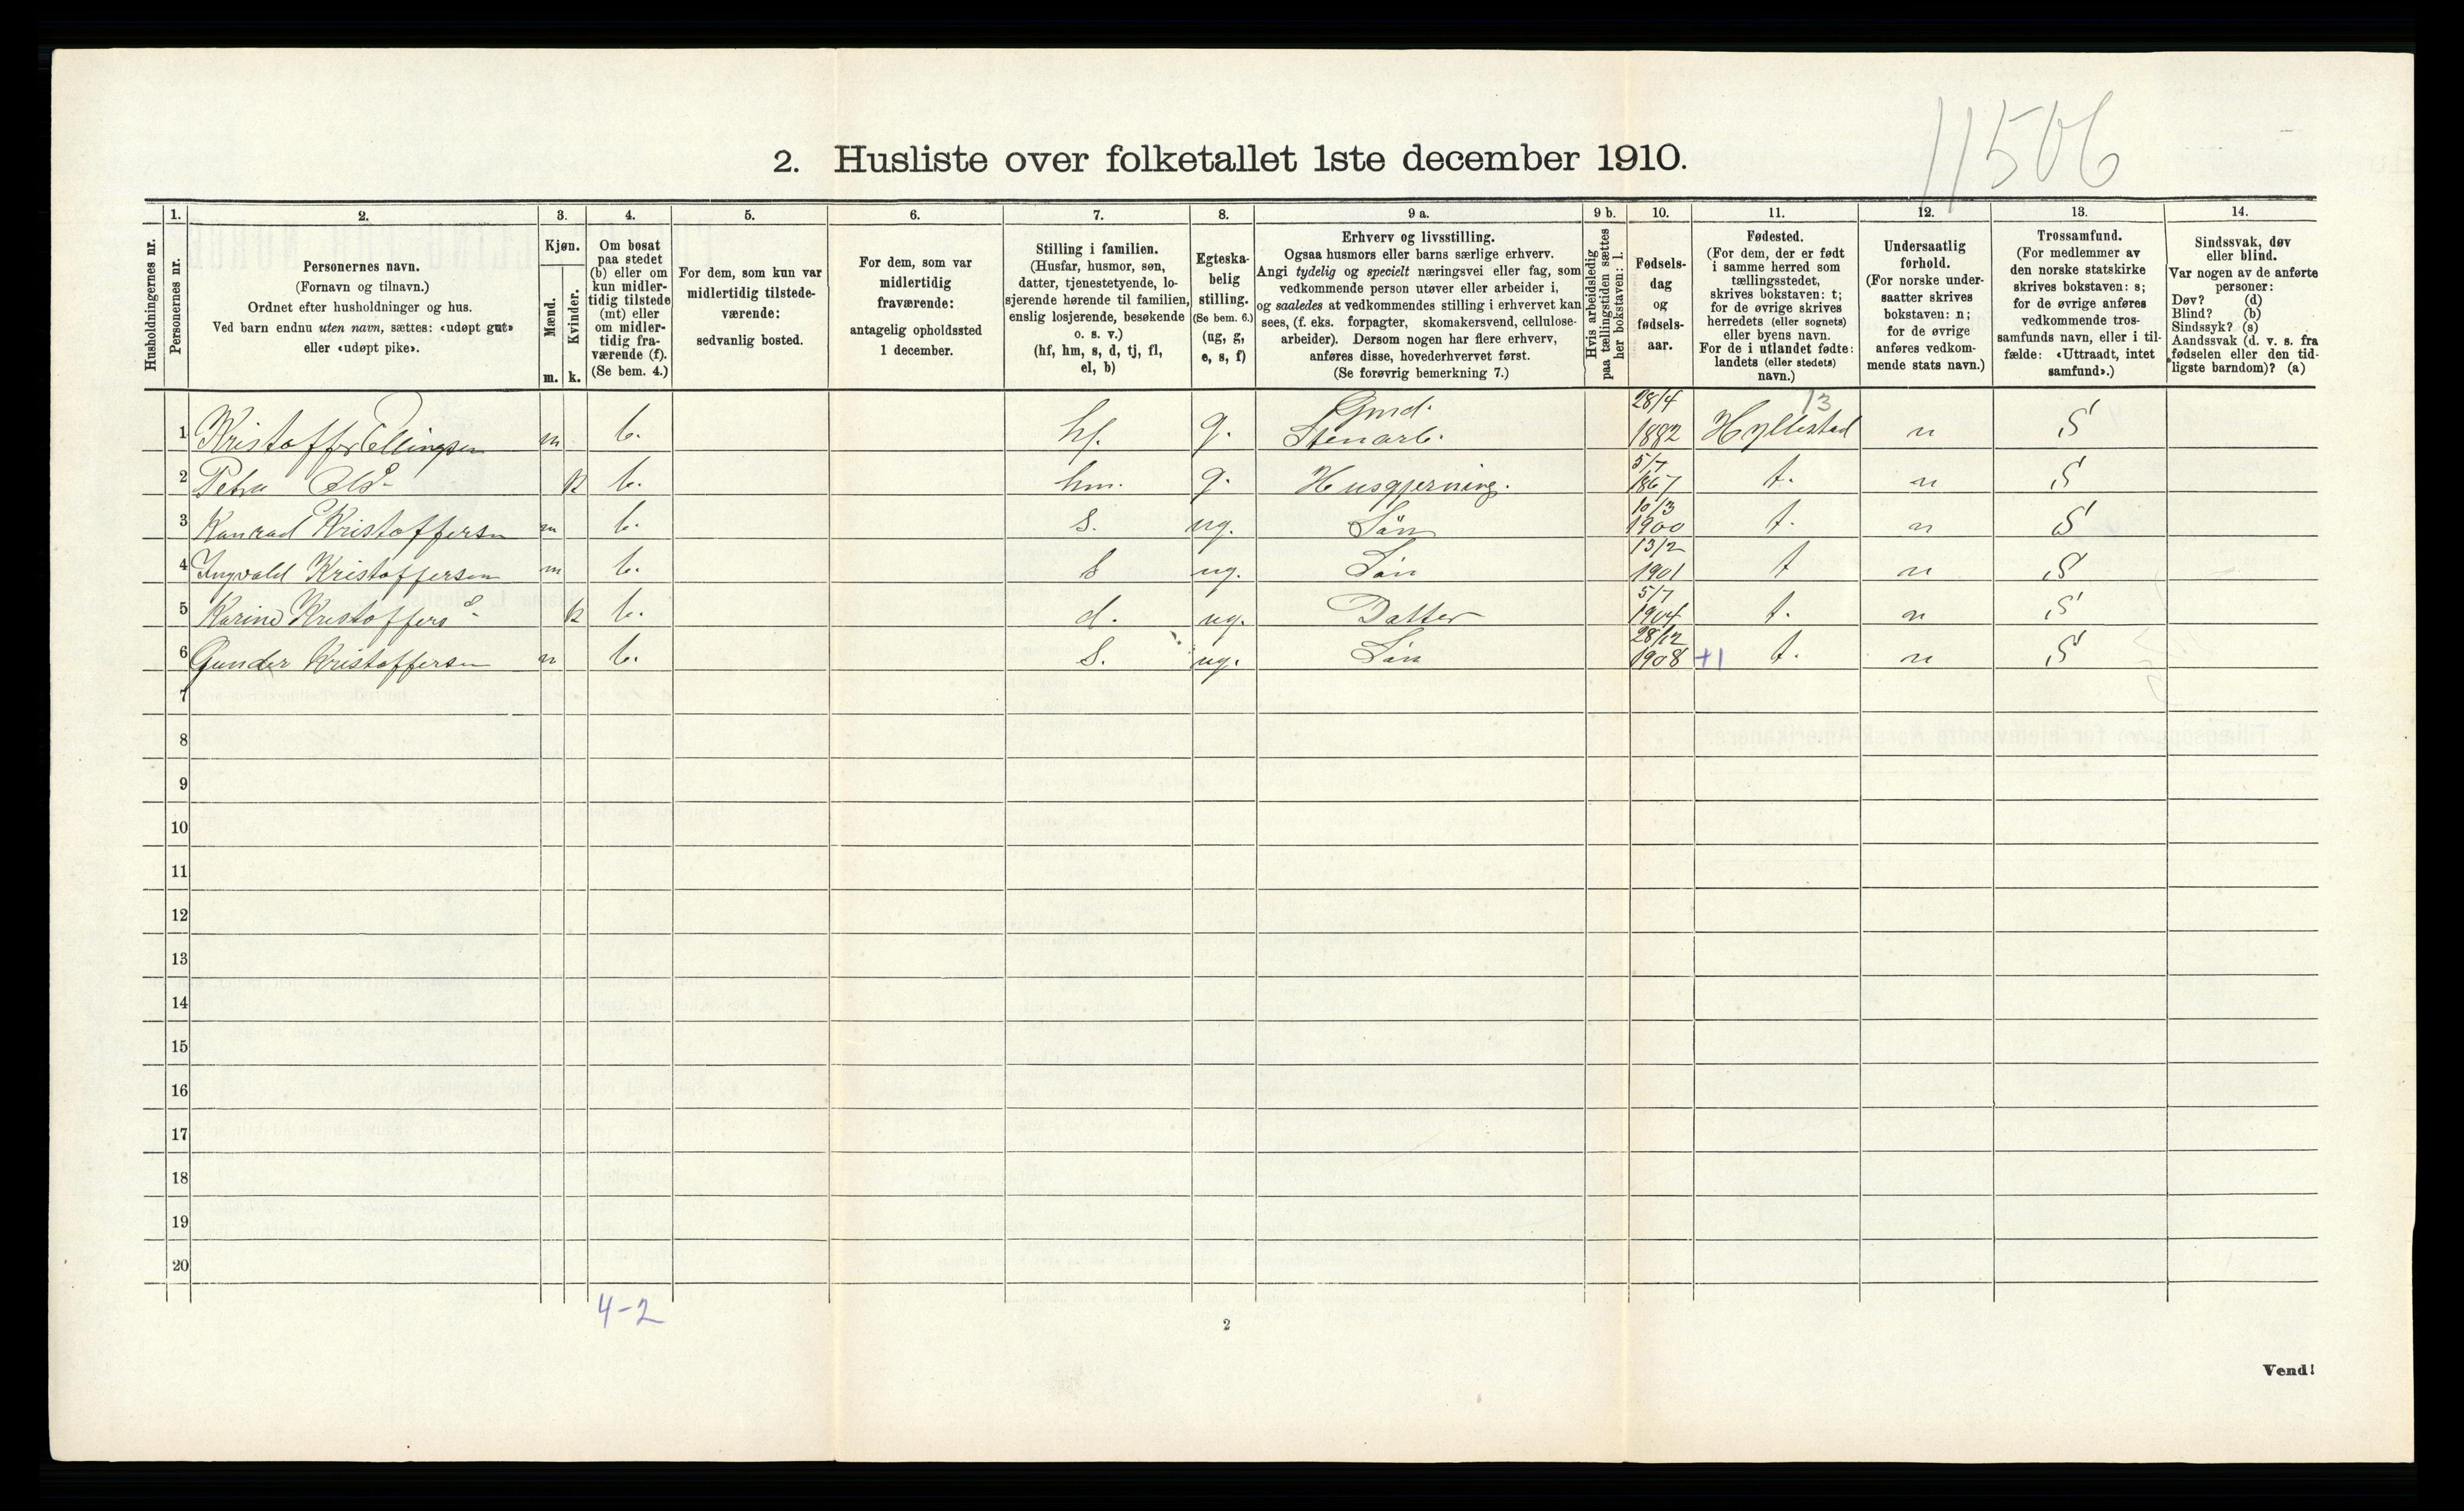 11506
2. Husliste over folketallet 1ste december 1910.
Husholdningernes nr.
1.
Personernes nr.
2.
Personernes navn.
(Fornavn og tilnavn.)
Ordnet efter husholdninger og hus.
Ved barn endnu uten navn, sættes: «udøpt gut»
eller «udøpt pike».
3.
Kjøn.
Mænd.
Kvinder.
m. k.
4.
Om bosat
paa stedet
(b) eller om
kun midler-
tidig tilstede
(mt) eller
om midler-
tidig fra-
værende (f).
(Se bem. 4.)
5.
For dem, som kun var
midlertidig tilstede-
værende:
sedvanlig bosted.
6.
For dem, som var
midlertidig
fraværende:
antagelig opholdssted
1 december.
7.
Stilling i familien.
(Husfar, husmor, søn,
datter, tjenestetyende, lo-
sjerende hørende til familien,
enslig losjerende, besøkende
o. s. v.)
(hf, hm, s, d, tj, fl,
el, b)
8.
Egteska-
belig
stilling.
(Se bem. 6.)
(ug, g,
e, s, f)
9 a.
Erhverv og livsstilling.
Ogsaa husmors eller barns særlige erhverv.
Angi tydelig og specielt næringsvei eller fag, som
vedkommende person utøver eller arbeider i,
og saaledes at vedkommendes stilling i erhvervet kan
sees, (f. eks. forpagter, skomakersvend, cellulose-
arbeider). Dersom nogen har flere erhverv,
anføres disse, hovederhvervet først.
(Se forøvrig bemerkning 7.)
9 b.
Hvis arbeidsledig
paa tællingstiden sættes
her bokstaven: l.
10.
Fødsels-
dag
og
fødsels-
aar.
11.
Fødested.
(For dem, der er født
i samme herred som
tællingsstedet,
skrives bokstaven: t;
for de øvrige skrives
herredets (eller sognets)
eller byens navn.
For de i utlandet fødte:
landets (eller stedets)
navn.)
12.
Undersaatlig
forhold.
(For norske under-
saatter skrives
bokstaven: n;
for de øvrige
anføres vedkom-
mende stats navn.)
13.
Trossamfund.
(For medlemmer av
den norske statskirke
skrives bokstaven: s;
for de øvrige anføres
vedkommende tros-
samfunds navn, eller i til-
fælde: «Uttraadt, intet
samfund».)
14.
Sindssvak, døv
eller blind.
Var nogen av de anførte
personer:
Døv? (d)
Blind? (b)
Sindssyk? (s)
Aandssvak (d. v. s. fra
fødselen eller den tid-
ligste barndom)? (a)
1 Kristoffer Ellingsen m b. hf. g. Gmd. Stenarb. 28/4 1882 Hyllestad 13 n S
2 Petra k b. hm. g. Husgjerning. 5/7 1867 t. n S
3 Konrad Kristoffersen m b. s. ug. Sön 10/3 1900 t. n S
4 Ingvald Kristoffersen m b. s ug. Sön 13/2 1901 t n S
5 Karine Kristoffers k b. d. ug. Datter 5/7 1904 t. n S
6 Gunder Kristoffersen m b. s. ug. Sön 28/12 1908 +1 t. n S
7
8
9
10
11
12
13
14
15
16
17
18
19
20
4-2
2
Vend!